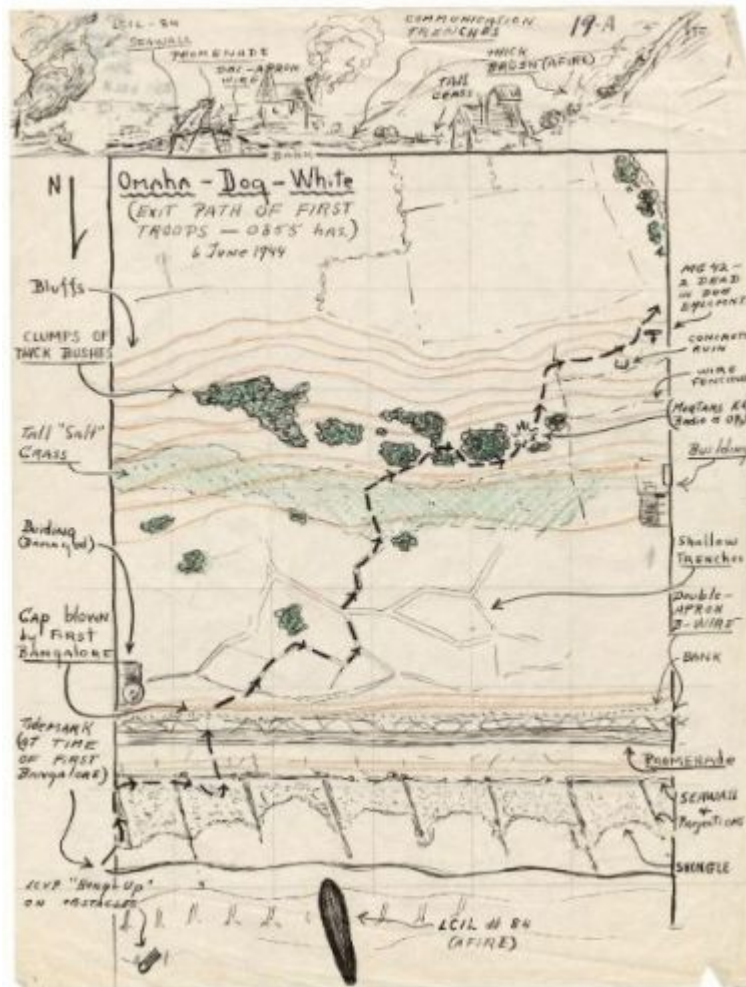 LCIL - 84
SEAWALL
PROMENADE
DBL-APRON
WIRE
COMMUNICATION
TRENCHES
19-A
THICK
BRUSH (AFIRE)
TALL
GRASS
BANK
N
Omaha - Dog - White
(EXIT PATH OF FIRST
TROOPS — 0855 hrs.)
6 June 1944
Bluffs
CLUMPS OF
THICK BUSHES
Tall "Salt"
GRASS
Building
(Damaged)
Gap blown
by First
BANGALORE
TIDEMARK
(AT TIME
OF FIRST
BANGALORE)
LCVP "Hung-Up"
ON OBSTACLES
MG 42 -
2 DEAD
CONCRETE
RUIN
WIRE
Building
Shallow
Trenches
Double-
APRON
B-WIRE
BANK
PROMENADE
SEAWALL
+
Projections
SHINGLE
LCIL # 84
(AFIRE)